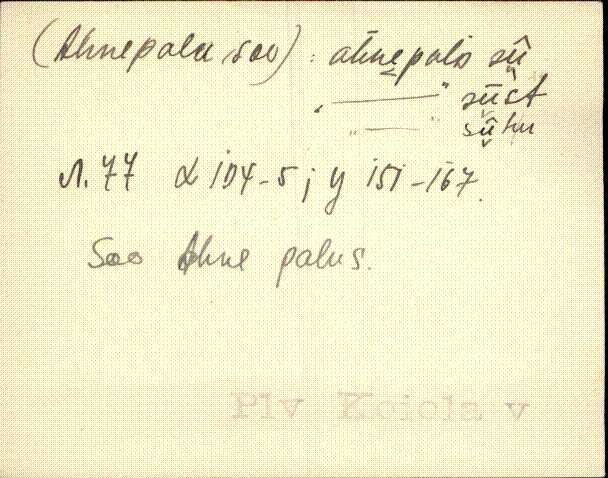 (Ahnepalu, soo) : āhne̮palo sū̬
" ——— " sū̬st
" ——— " sū̬hu
Л. 77 α 104-5 ; y 151-167.
Soo Ahne palus.
Plv Kioia v